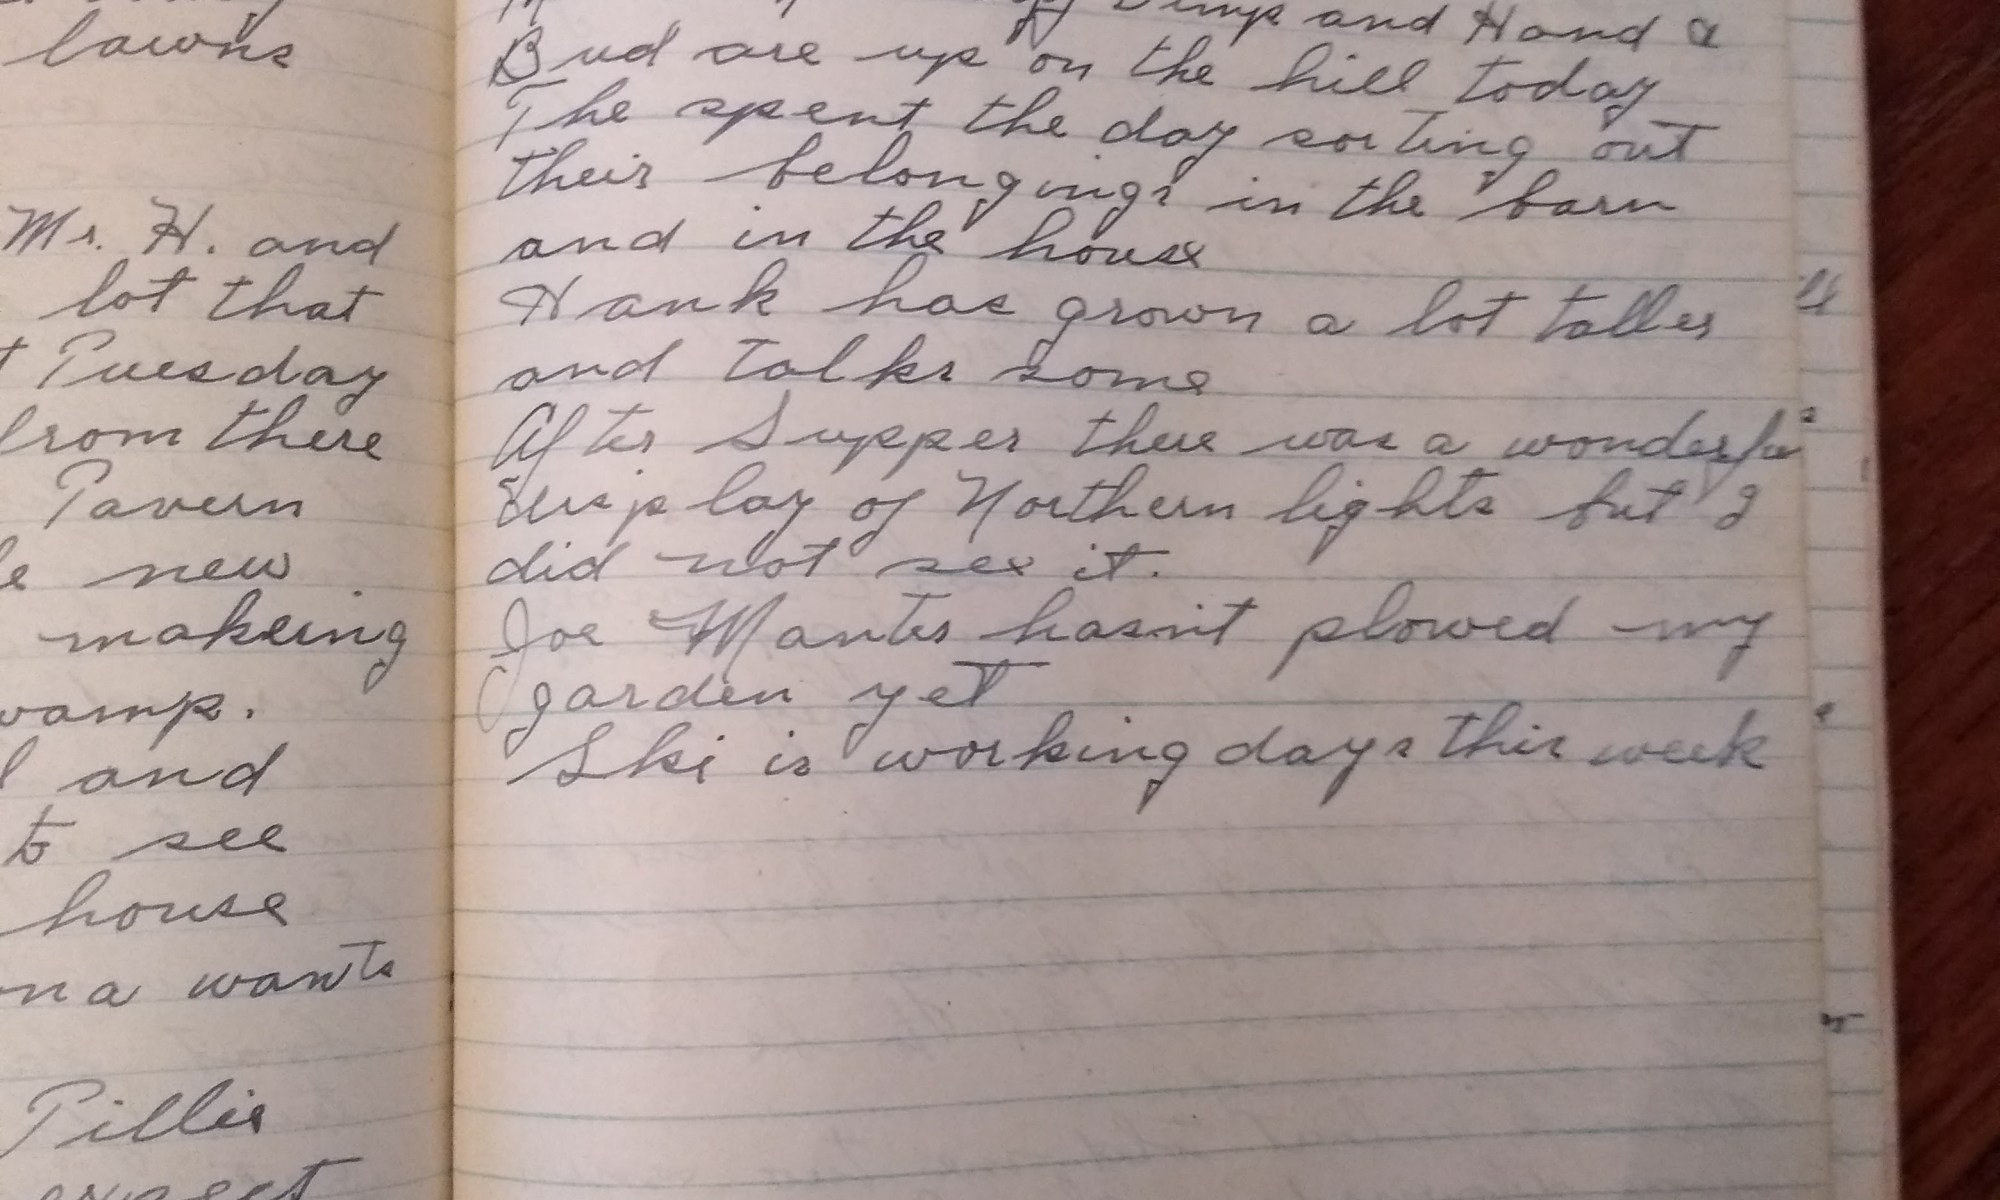 lawns
Mr. H. and
lot that
Tuesday
from there
Tavern
new
makeing
and
to see
house
wants
Tillie
expect
and Hand a
Bud are up on the hill today
The spent the day sorting out
their belongings in the barn
and in the house
Hank has grown a lot taller
and talks some
After Supper there was a wonderful
display of Northern lights but I
did not see it.
Joe Manter hasn't plowed my
garden yet
Ski is working days this week